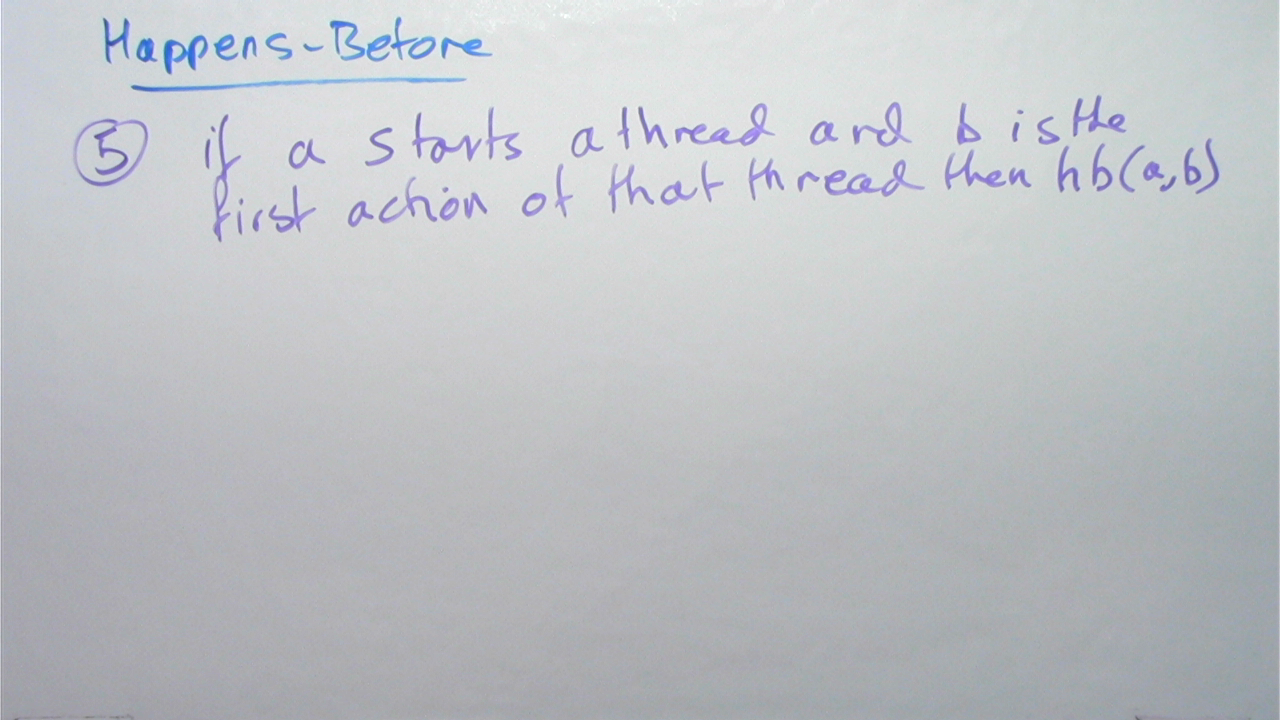 Happens-Before
5 if a starts a thread and b is the
first action of that thread then hb(a,b)